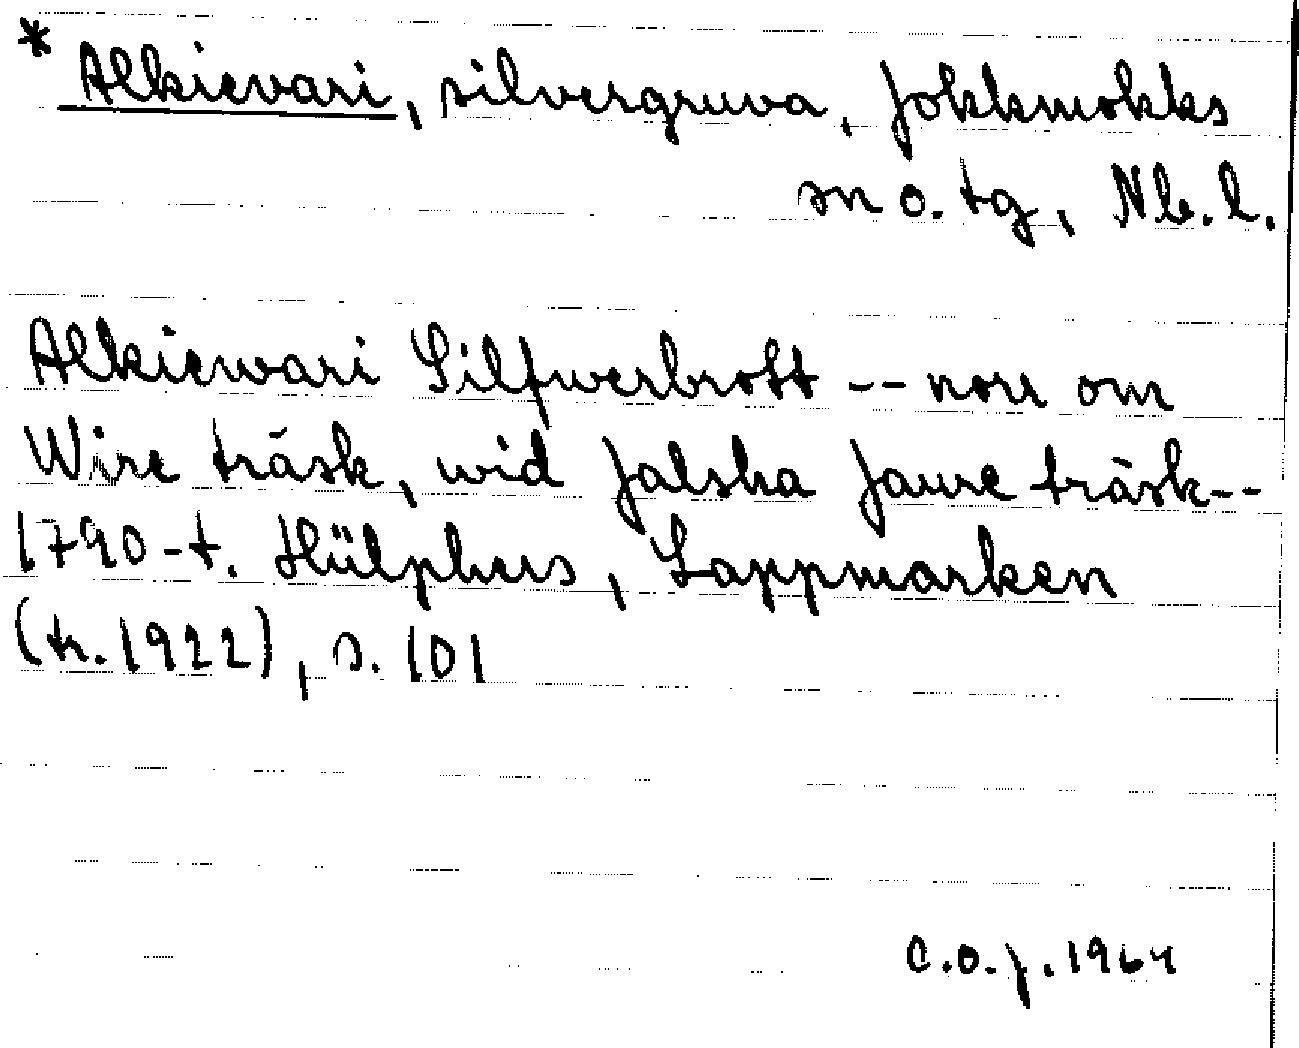 * Alkievari, silvergruva, Jokkmokks
sn o. tg, Nb. l.
Alkiewari Silfwerbrott -- norr om
Wire träsk, wid Jalska Jaure träsk--
1790-t. Hülphers, Lappmarken
(tr. 1922), s. 101
C.O.J. 1964